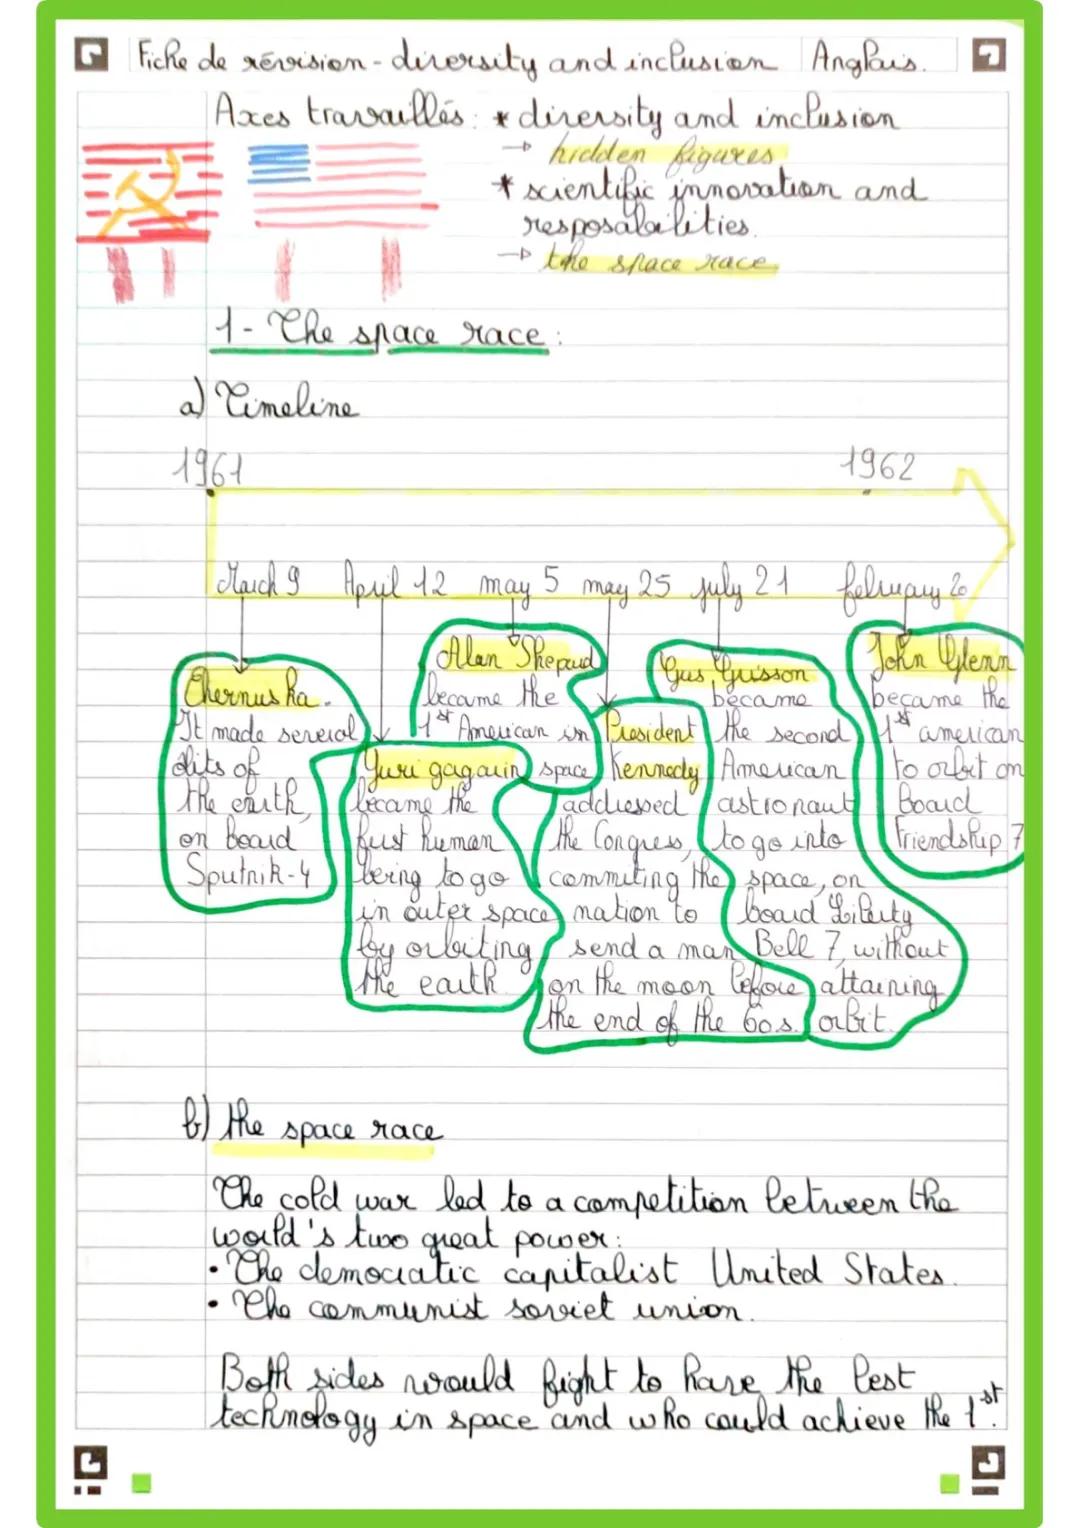 Fiche de révision - diversity and inclusion Anglais.
Axes travaillés: * diversity and inclusion
→ hidden figures
* scientific innovation and
resposabilities.
→ the space race
1- The space race:
a) Timeline
1961 1962
March 9 April 12 may 5 may 25 july 21 february 20
Chernuska.
It made several
obits of
the earth,
on board
Sputnik-4
Yuri gagarin
became the
first human
being to go
in outer space
by orbiting
the earth.
Alan Shepard
became the
1st American in
space
President
Kennedy
addressed
the Congress,
commiting the
nation to
send a man
on the moon before
the end of the 60s.
Gus Grisson
became
the second
American
astronaut
to go into
space, on
board Liberty
Bell 7, without
attaining
orbit.
John Glenn
became the
1st american
to orbit on
Board
Friendship 7
b) the space race
The cold war led to a competition between the
world's two great power:
• The democratic capitalist United States.
• The communist soviet union.
Both sides would fight to have the best
technology in space and who could achieve the 1st.